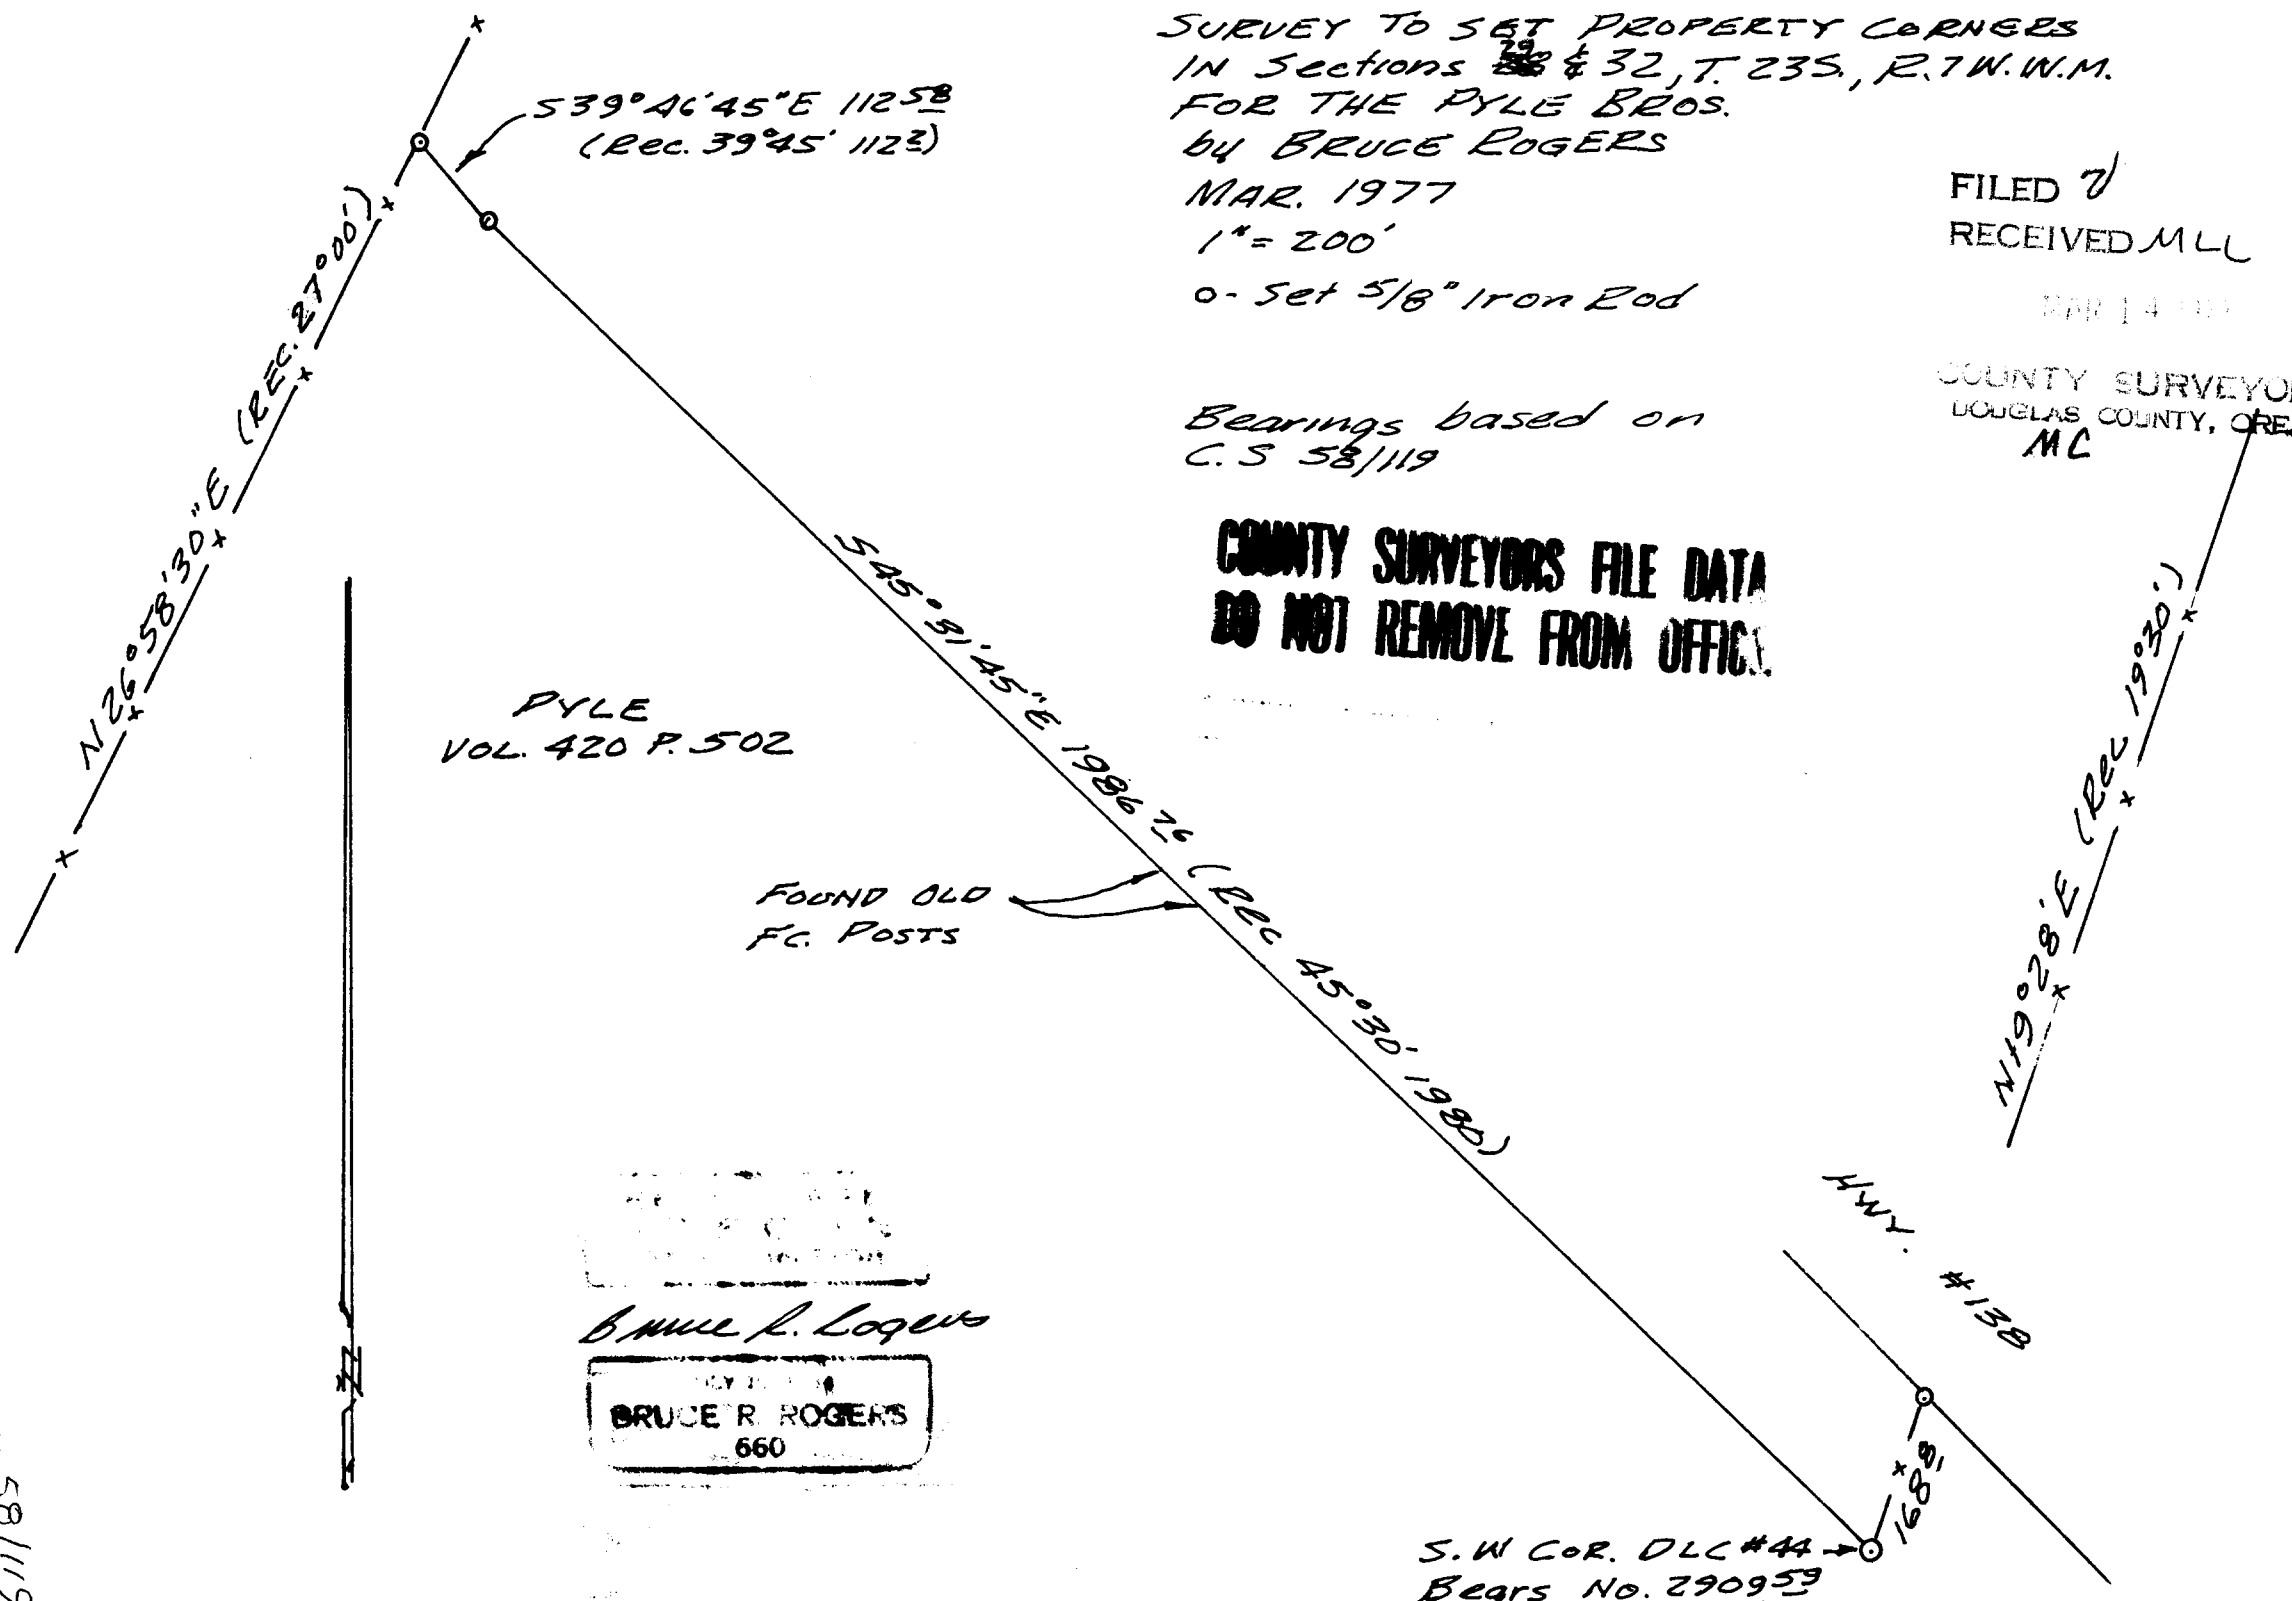 SURVEY TO SET PROPERTY CORNERS
IN Sections 29 & 32, T. 23S., R.7W.W.M.
FOR THE PYLE BROS.
by BRUCE ROGERS
MAR. 1977
1"= 200'
o- Set 5/8" Iron Rod
Bearings based on
C.S 58/119
FILED
RECEIVED MLL
MAR 14
COUNTY SURVEYOR
DOUGLAS COUNTY, ORE.
MC
COUNTY SURVEYORS FILE DATA
DO NOT REMOVE FROM OFFICE
S39°46'45"E 112 58
(Rec. 39°45' 112 2)
N26°58'30"E (REC. 27°00')
S45°31'45"E 1986 76 (Rec 45°30' 1980)
PYLE
VOL. 420 P. 502
FOUND OLD
FC. POSTS
N19°28'E (Rec 19°30')
HWY. #138
168 8
S.W COR. DLC #44
Bears No. 2909 59
Bruce R. Rogers
BRUCE R. ROGERS
660
58/119